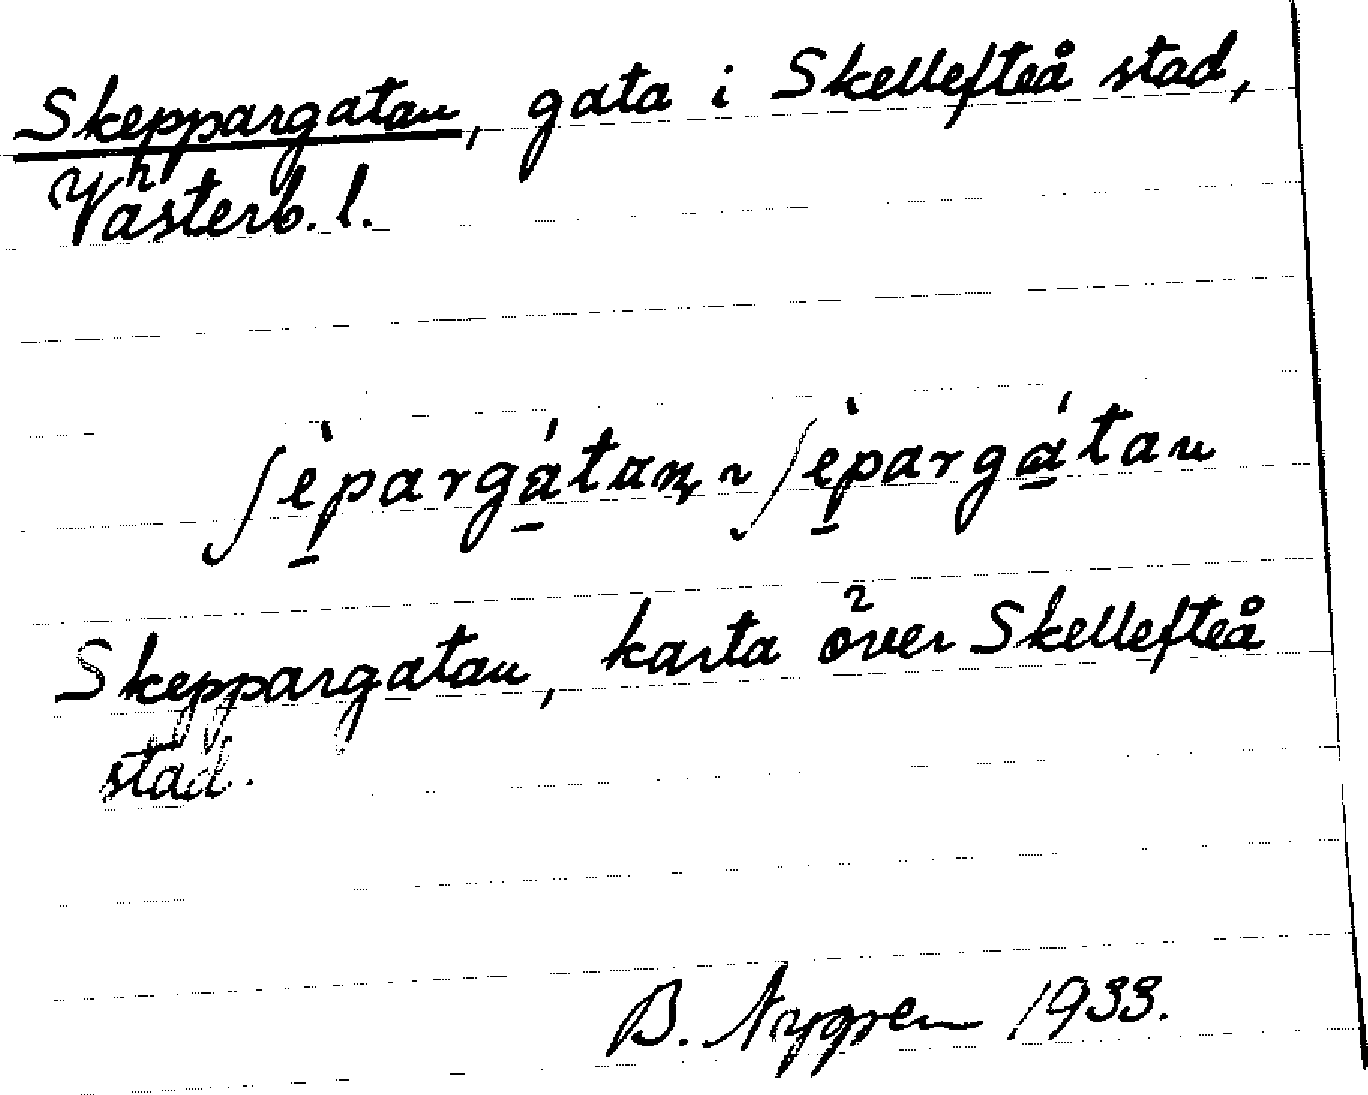 Skeppargatan, gata i Skellefteå stad,
Västerb. l.
ʃè̱pargá̱tan ~ ʃè̱pargá̱tan
Skeppargatan, karta över Skellefteå
stad.
B. Nygren 1933.